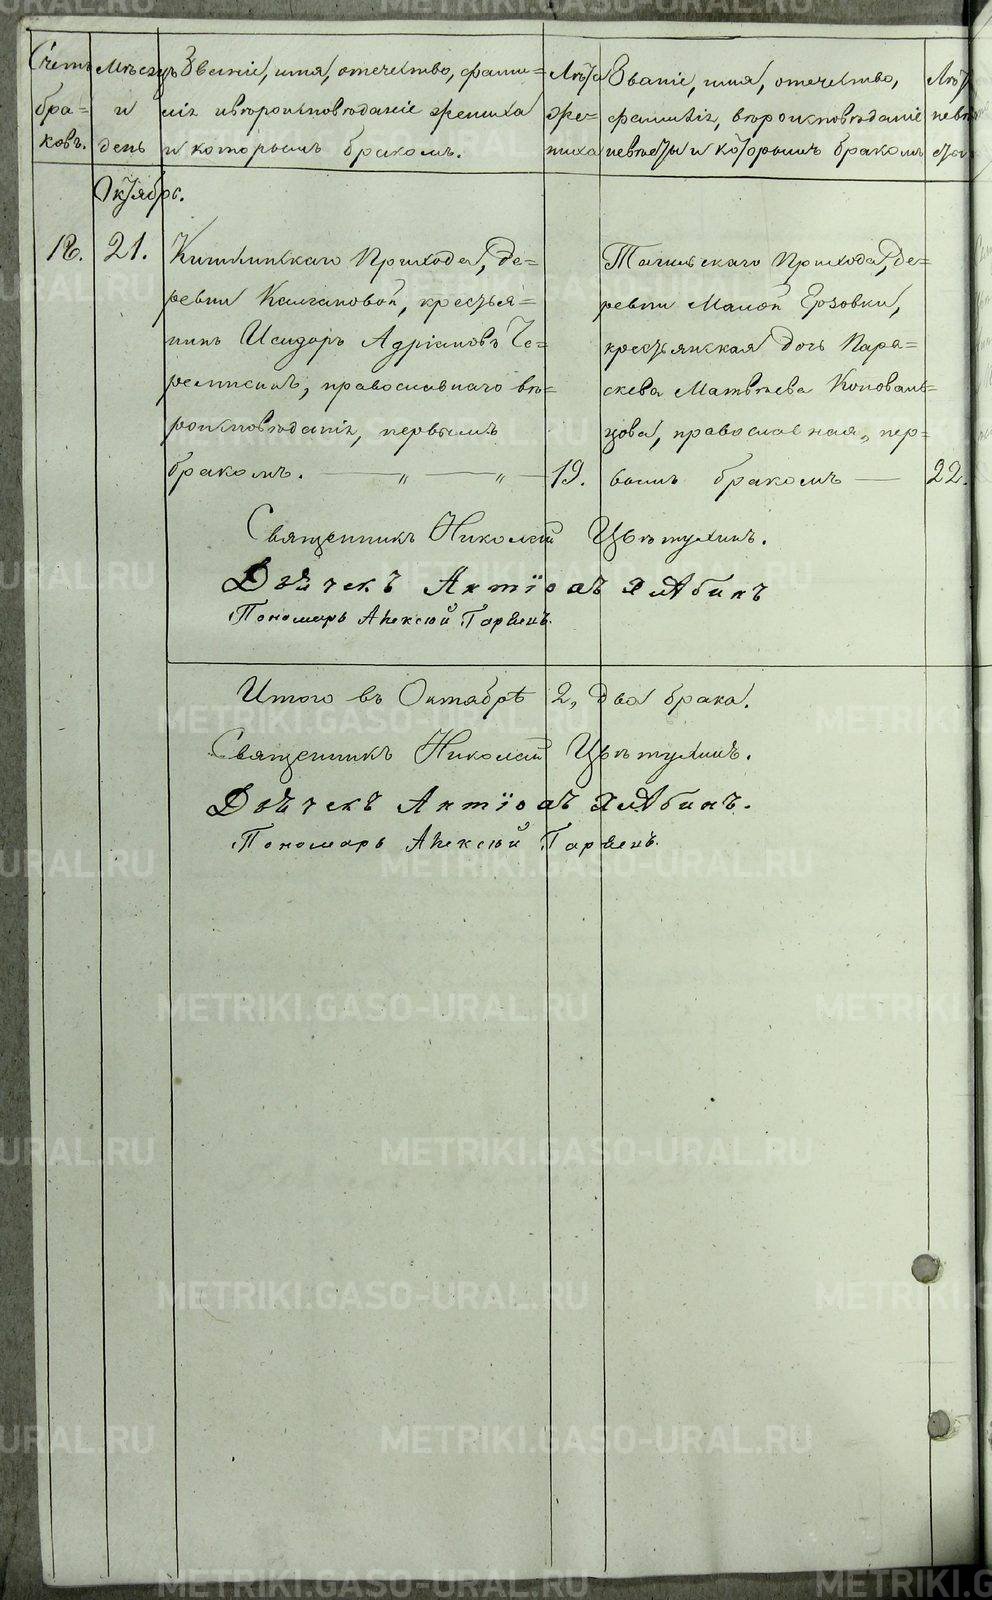 Счетъ бра- ковъ.
Мѣсяцъ и день
Званіе, имя, отечество, фами-
лія и вѣроисповѣданіе жениха
и которымъ бракомъ.
Лѣта же- ниха
Званіе, имя, отечество,
фамилія, вѣроисповѣданіе
невѣсты и которымъ бракомъ
Лѣта невѣ-
Октябрь.
12. 21.
Кишкинскаго Прихода, де-
ревни Калгановой, крестья-
нинъ Исидоръ Адріановъ Че-
ремисинъ, православнаго вѣ-
роисповѣданія, первымъ
бракомъ. — „ — „ — 19.
Тагильскаго Прихода, де-
ревни Малой Ерзовки,
крестьянская дочь Пара-
скева Матвѣева Коноваль-
цова, православная, пер-
вымъ бракомъ — 22.
Священникъ Николай Цвѣтухинъ.
Дьячекъ
Пономарь Алексѣй
Итого въ Октябрѣ 2, два брака.
Священникъ Николай Цвѣтухинъ.
Дьячекъ
Пономарь Алексѣй
METRIKI.GASO-URAL.RU